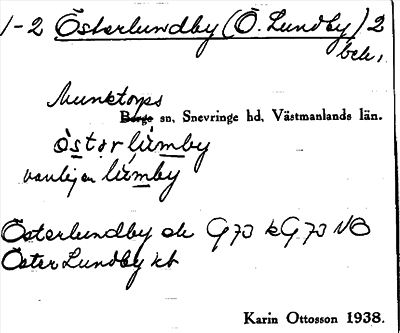 1-2 Österlundby (Ö. Lundby) 2
bebn.
Munktorps
Berga sn, Snevringe hd, Västmanlands län.
ö̀stərlúmby
vanligen lúmby
Österlundby ek G73 kG73 NB
Öster Lundby kt
Karin Ottosson 1938.